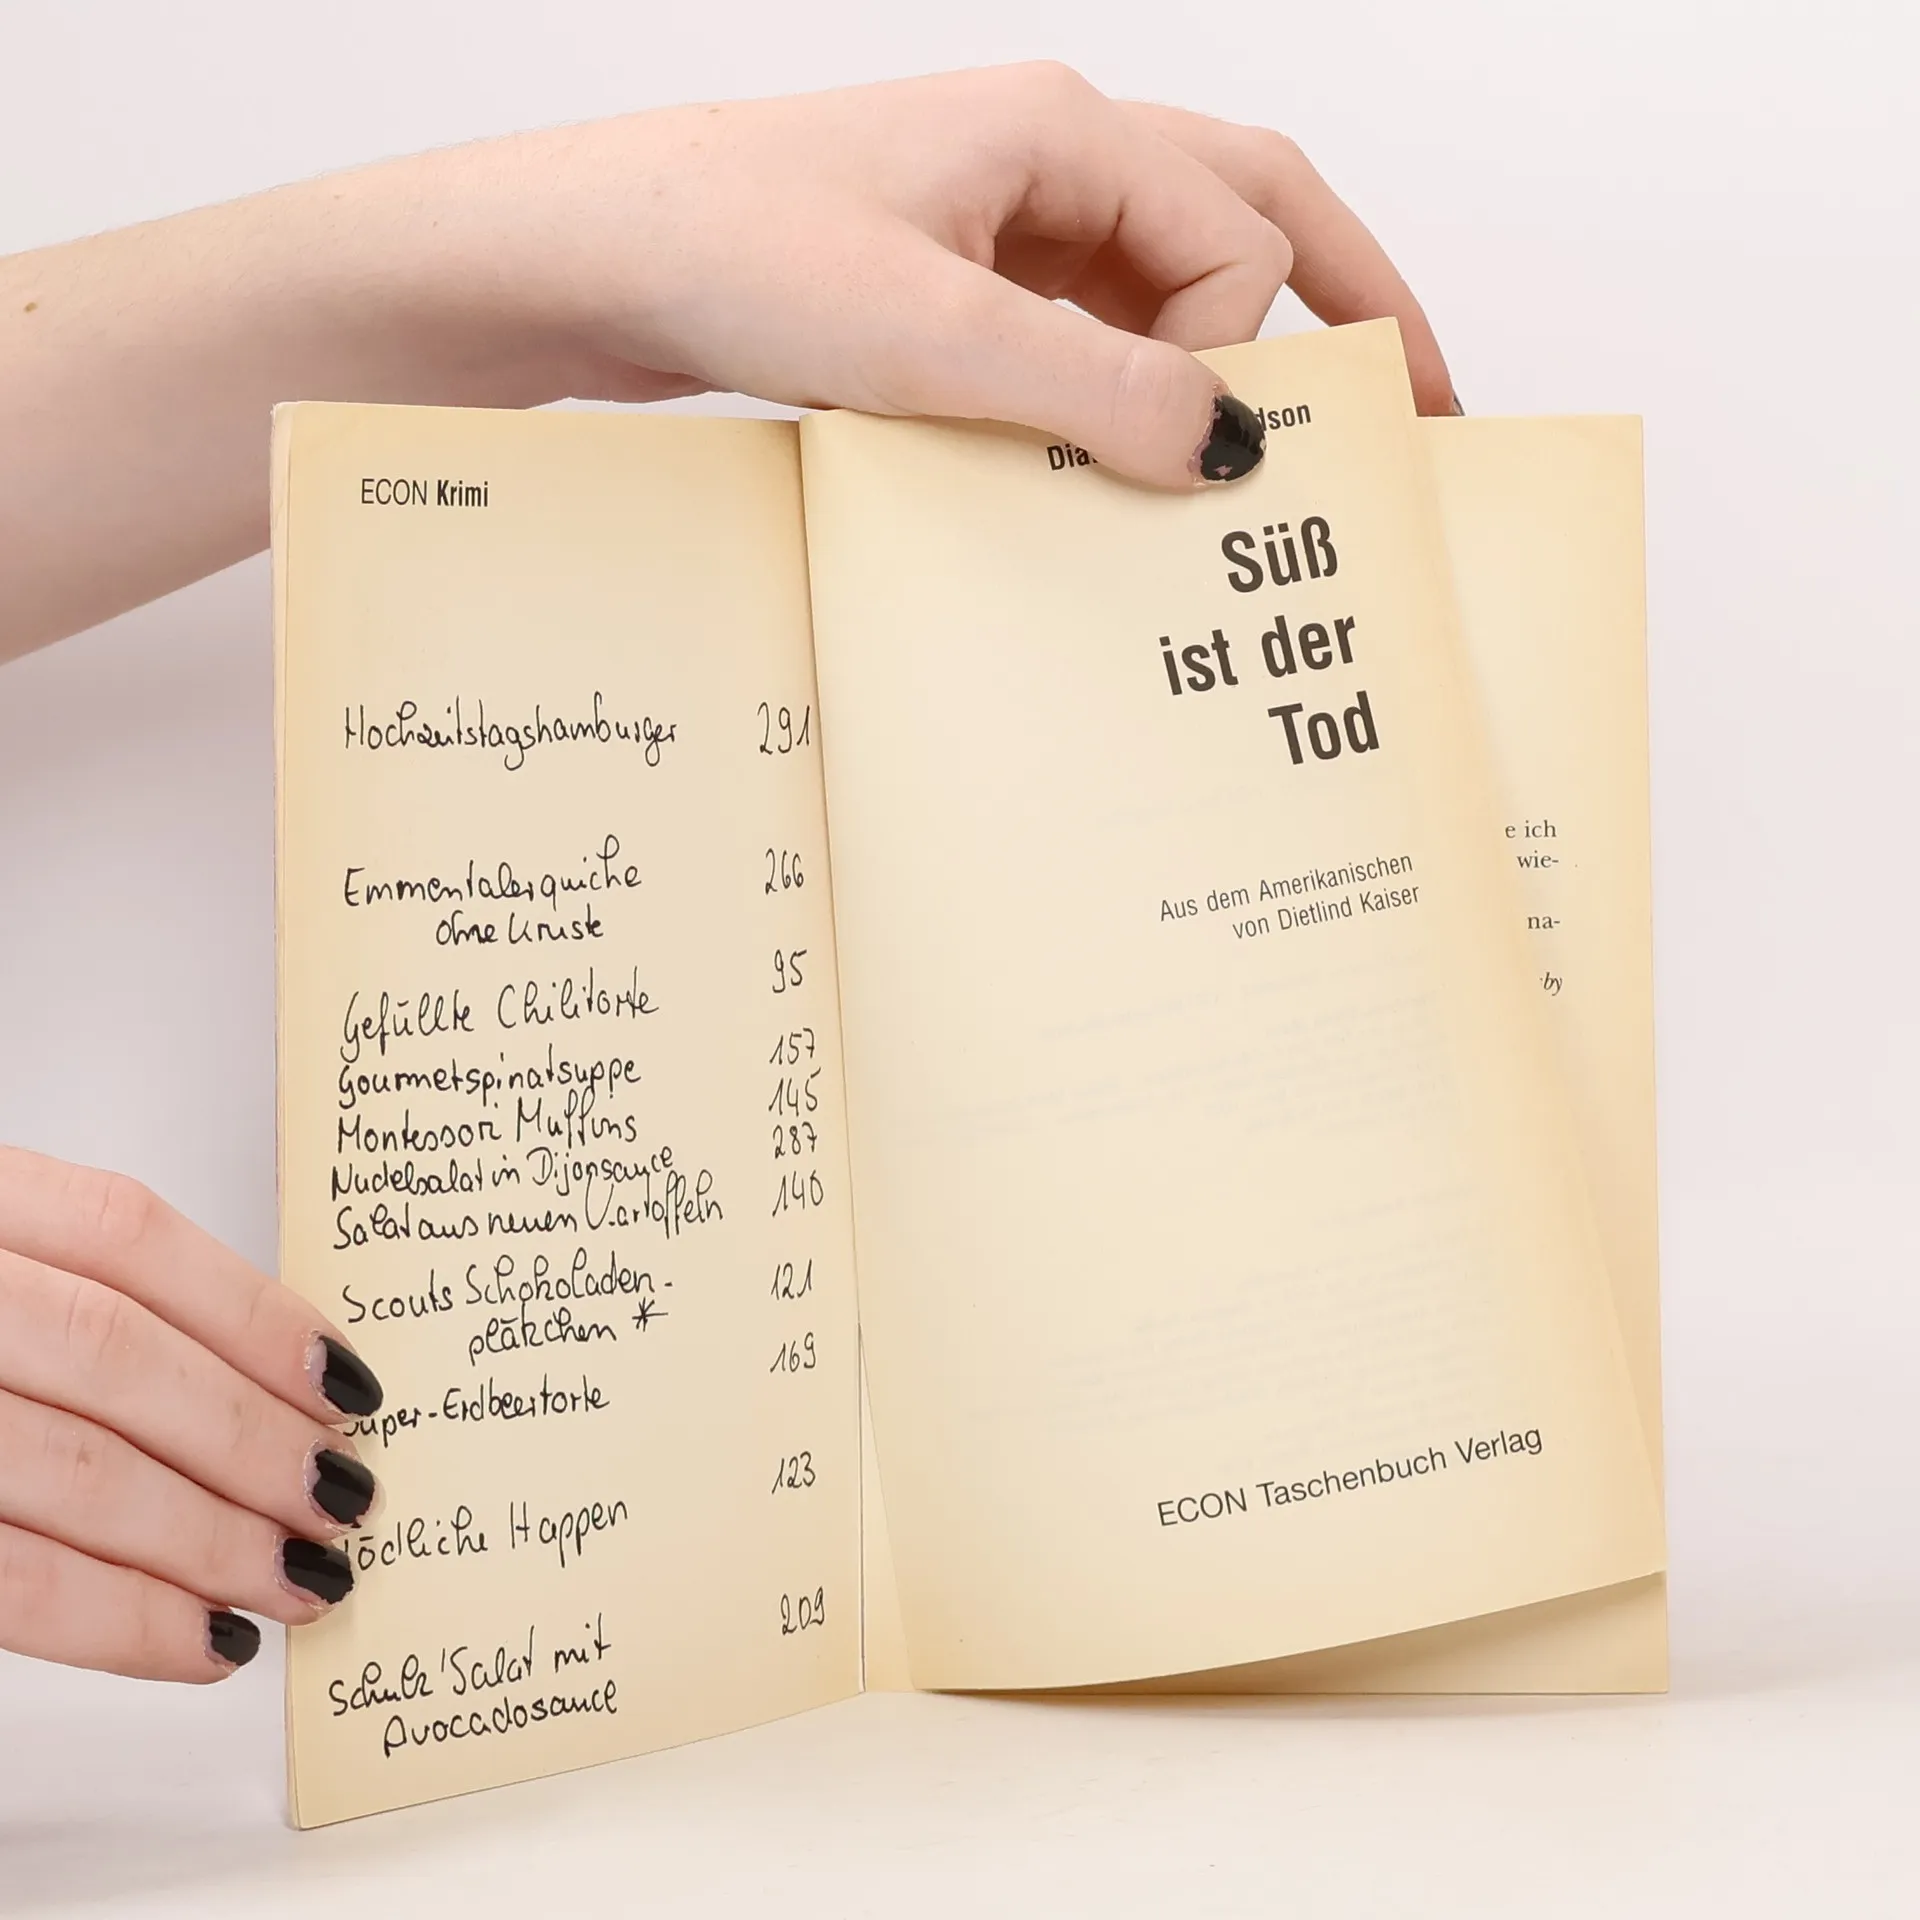 ECON Krimi
Hochzeitstagshamburger 291
Emmentalerquiche 266
ohne Kruste
Gefüllte Chilitorte 95
Gourmetspinatsuppe 157
Montessori Muffins 145
Nudelsalat in Dijonsauce 287
Salat aus neuen Kartoffeln 140
Scouts Schokoladen- 121
plätzchen *
Super-Erdbeertorte 169
Tödliche Happen 123
Schulz' Salat mit 209
Avocadosauce
Süß
ist der
Tod
Aus dem Amerikanischen
von Dietlind Kaiser
ECON Taschenbuch Verlag
e ich
wie-
na-
by